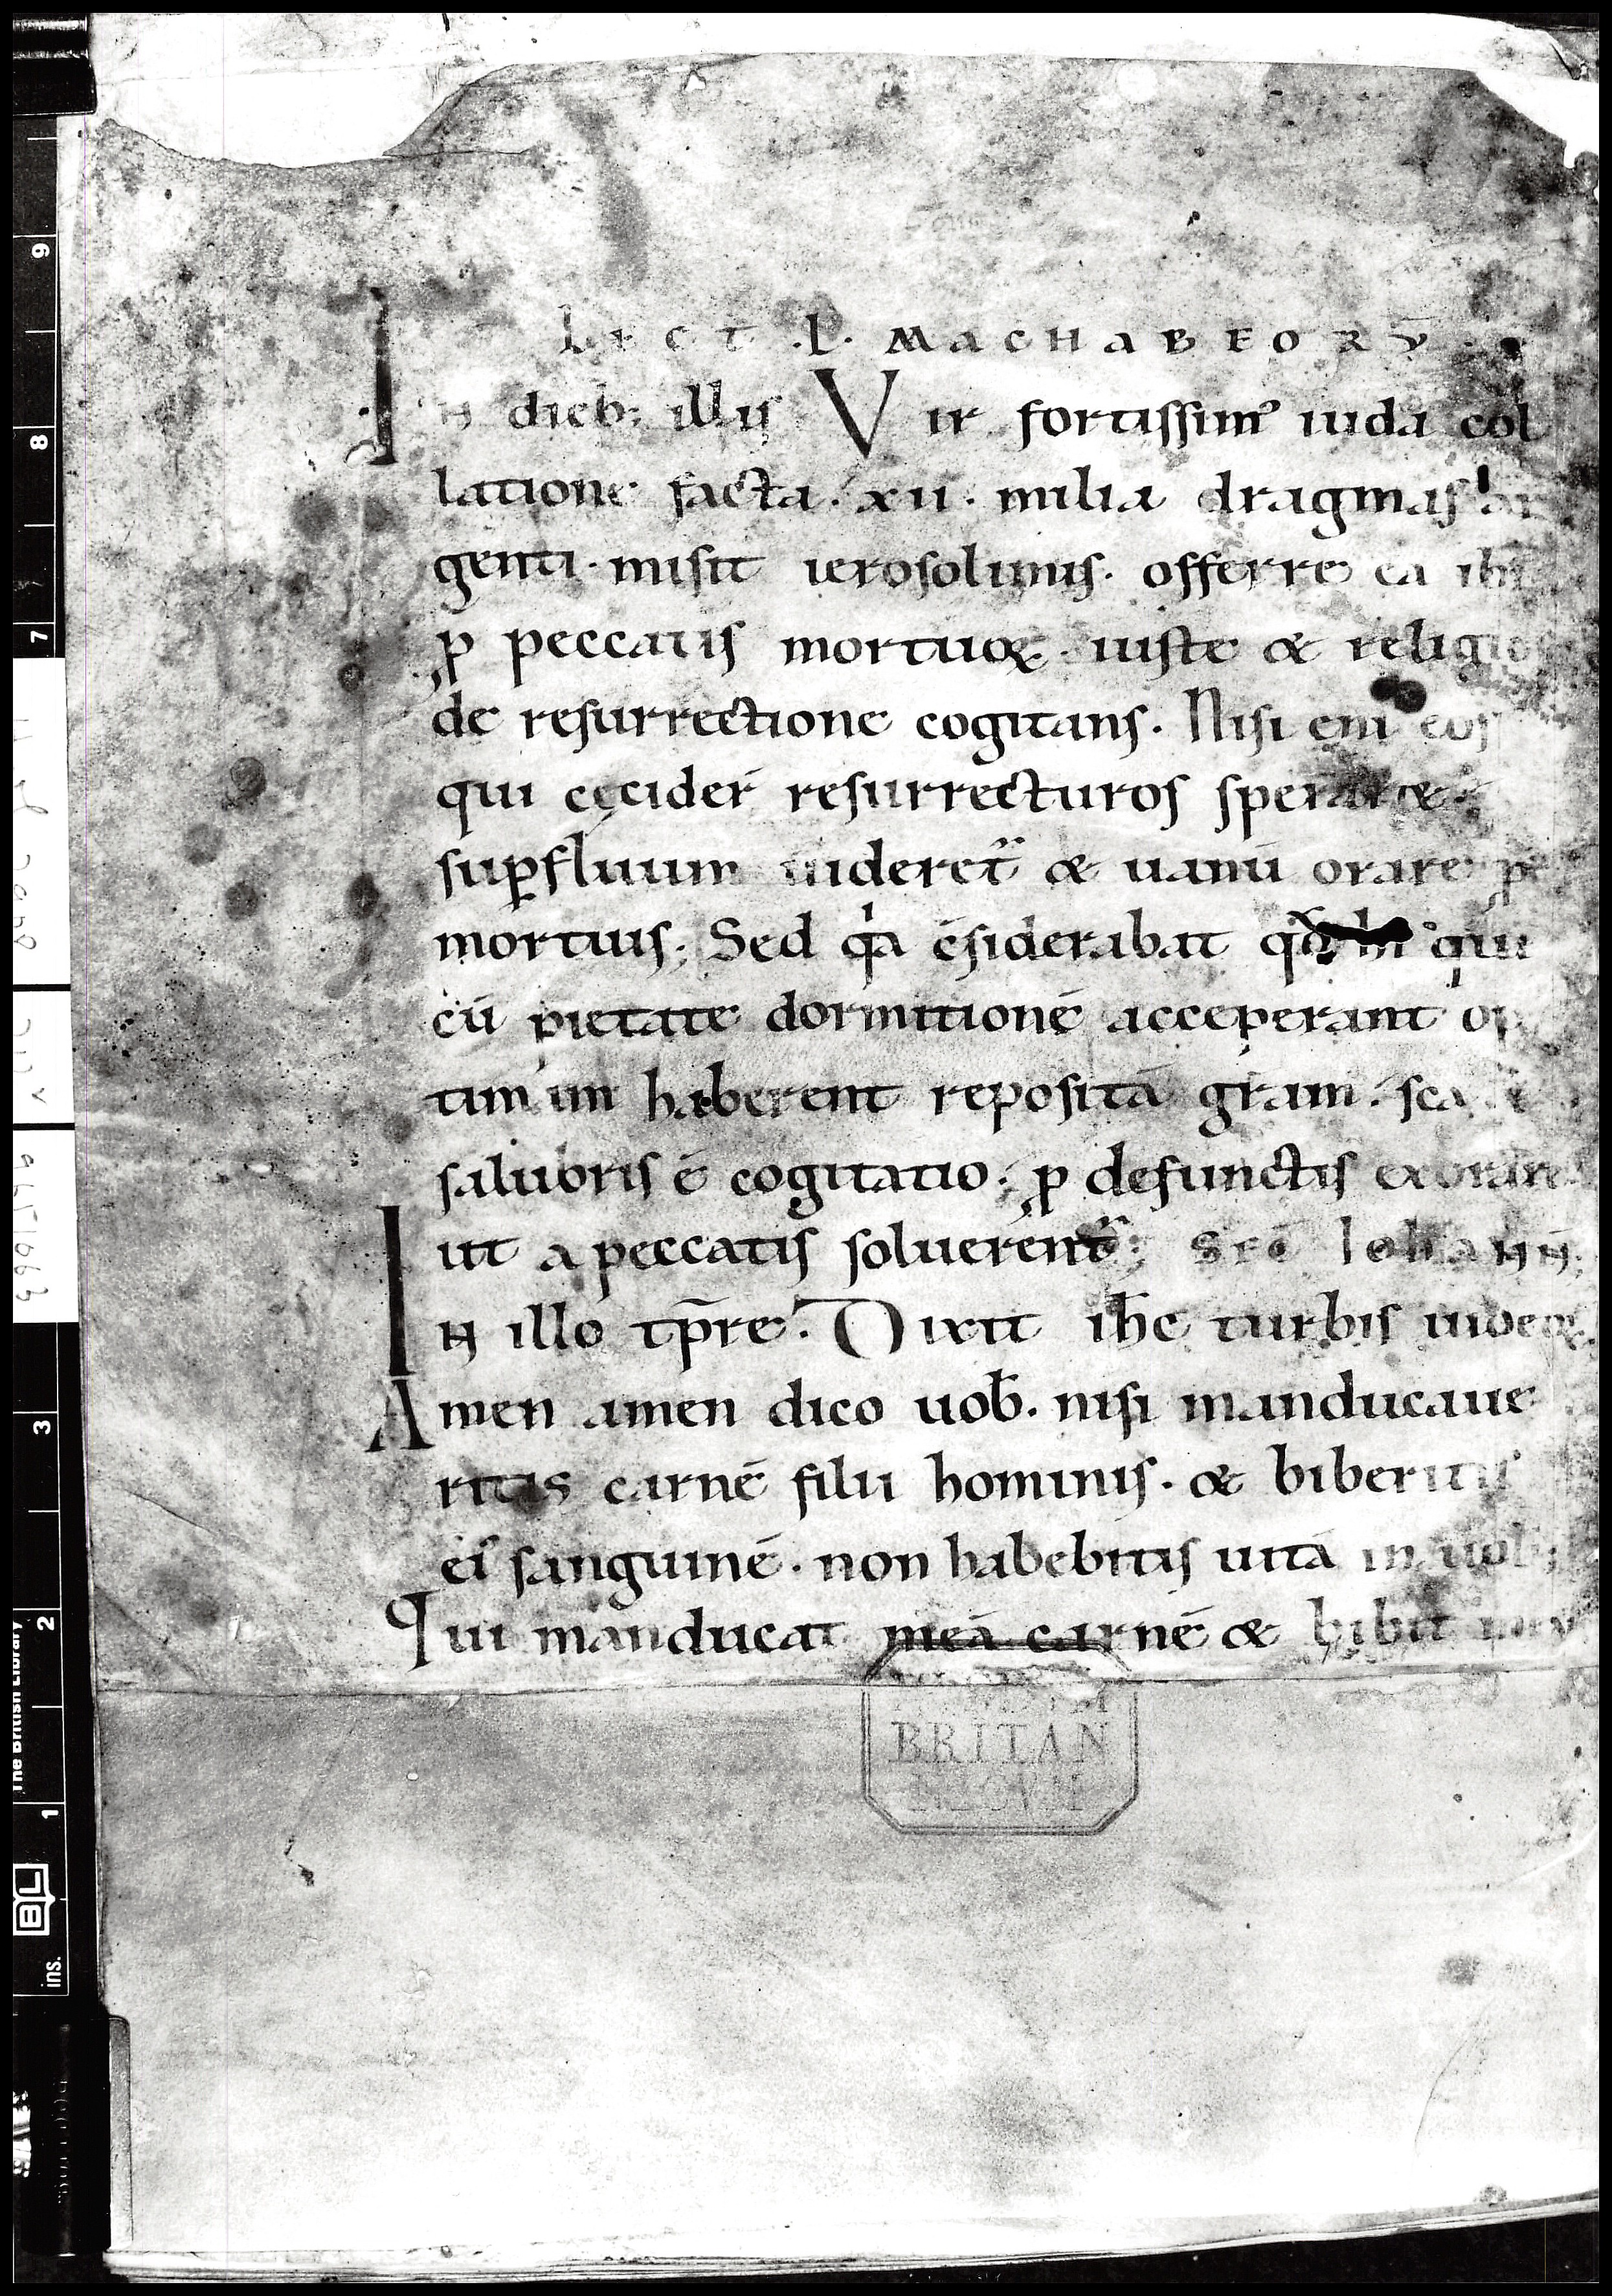 LECT L MACHABEORV̄
In dieb; illis Vir fortissim᾿ iuda col
latione facta. xii. milia dragmas ar
genti. misit ierosolimis. offerre ea ibi
ꝓ peccatis mortuoꝝ. iuste & religio
de resurrectione cogitans. Nisi eni eos
qui cecider̄ resurrecturos speraret.
suꝑfluum uideret᷑ & uanū orare ꝓ
mortuis; Sed qa c̄siderabat qd hi qui
cū pietate dormitionē acceperant op
timum haberent repositā gr̄am. sca
salubris ē cogitatio; ꝓ defunctis exorare
ut a peccatis soluerent᷑; SCD IOHANN;
In illo tp̄re. Dixit ih̄c turbis iudeoꝝ.
Amen amen dico uob̄. nisi manducaue
ritis carnē filii hominis. & biberitis
ei᾿ sanguinē. non habebitis uitā in uob;
Qui manducat meā carnē & bibit meū
BRITAN
NICVM
9
8
7
3
2
1
The British Library
BL
ins.